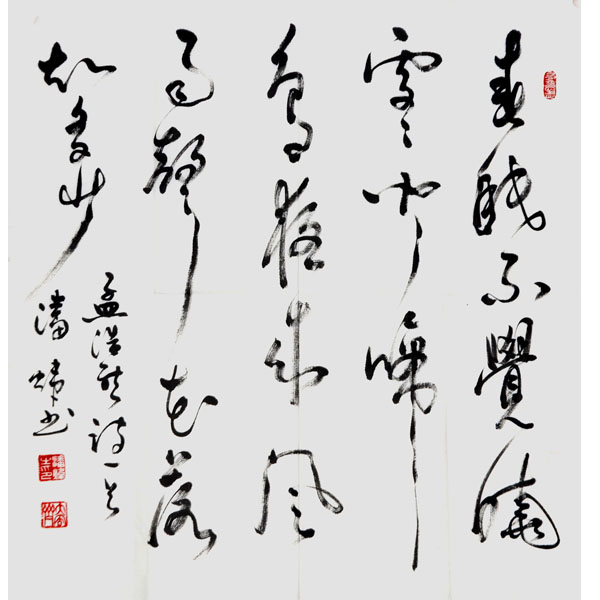 春眠不覺曉
處〻聞啼
鳥夜來風
雨聲花落
知多少
孟浩然詩一首
潘書